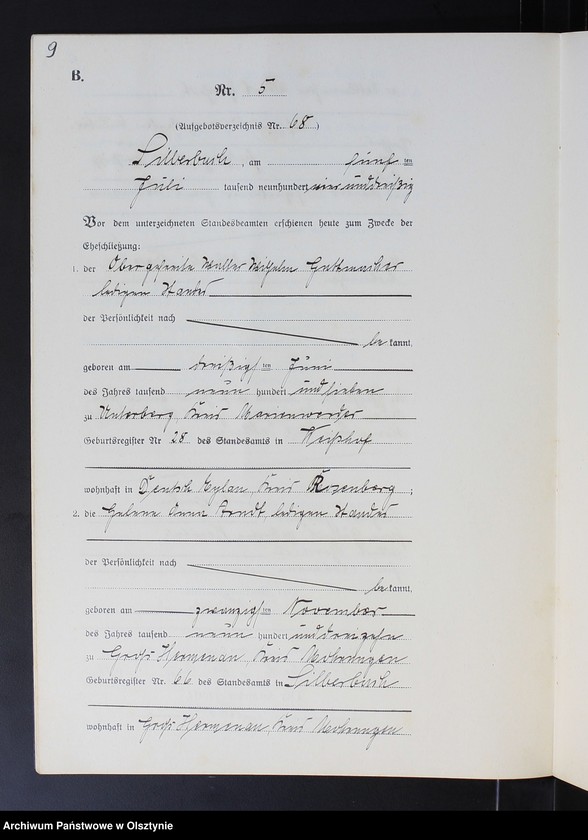 9
B.
Nr. 5
(Aufgebotsverzeichnis Nr. 68)
Silberbach, am fünf ten
Juli tausend neunhundert vier unddreißig
Vor dem unterzeichneten Standesbeamten erschienen heute zum Zwecke der
Eheschließung:
1. der Obergefreite Walter Wilhelm Guttmacher
ledigen Standes
der Persönlichkeit nach
be kannt,
geboren am dreißig sten Juni
des Jahres tausend neun hundert und sieben
zu Unterberg, Kreis Marienwerder
Geburtsregister Nr 28 des Standesamts in Weißhof
wohnhaft in Deutsch Eylau, Kreis Rosenberg;
2. die Helene Anna Arndt, ledigen Standes
der Persönlichkeit nach
be kannt,
geboren am zwanzig sten November
des Jahres tausend neun hundert und dreizehn
zu Groß Hermenau, Kreis Mohrungen
Geburtsregister Nr. 66 des Standesamts in Silberbach
wohnhaft in Groß Hermenau, Kreis Mohrungen
Archiwum Państwowe w Olsztynie